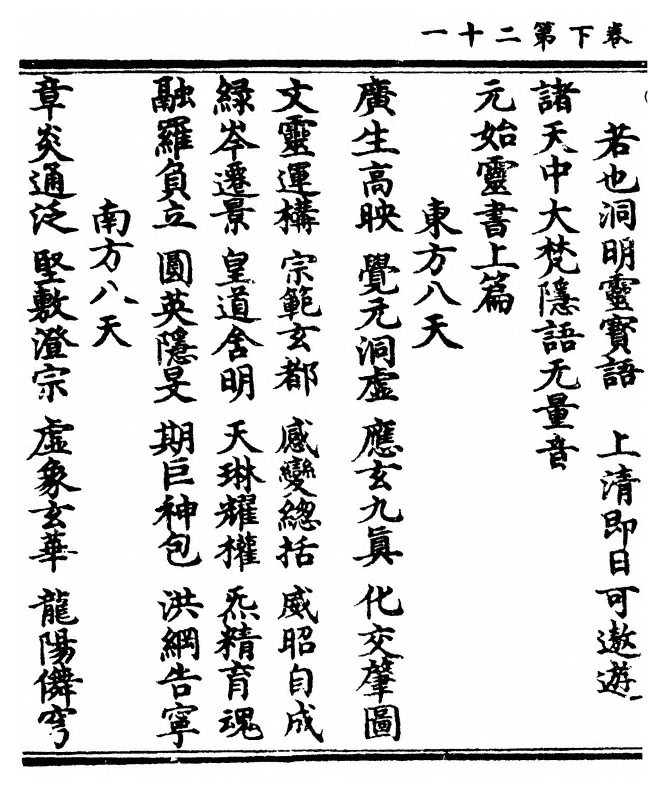 卷下第二十一
若也洞明靈寶語　上清即日可遨遊
諸天中大梵隱語无量音
元始靈書上篇
東方八天
廣生高映　覺元洞虛　應玄九眞　化交肇圖
文靈運構　宗範玄都　感變總括　威昭自成
綠岑遷景　皇道含明　天琳耀權　炁精育魂
融羅負立　圓英隱旻　期巨神包　洪綱告寧
南方八天
章炎通泛　堅敷澄宗　虛象玄華　龍陽儛穹